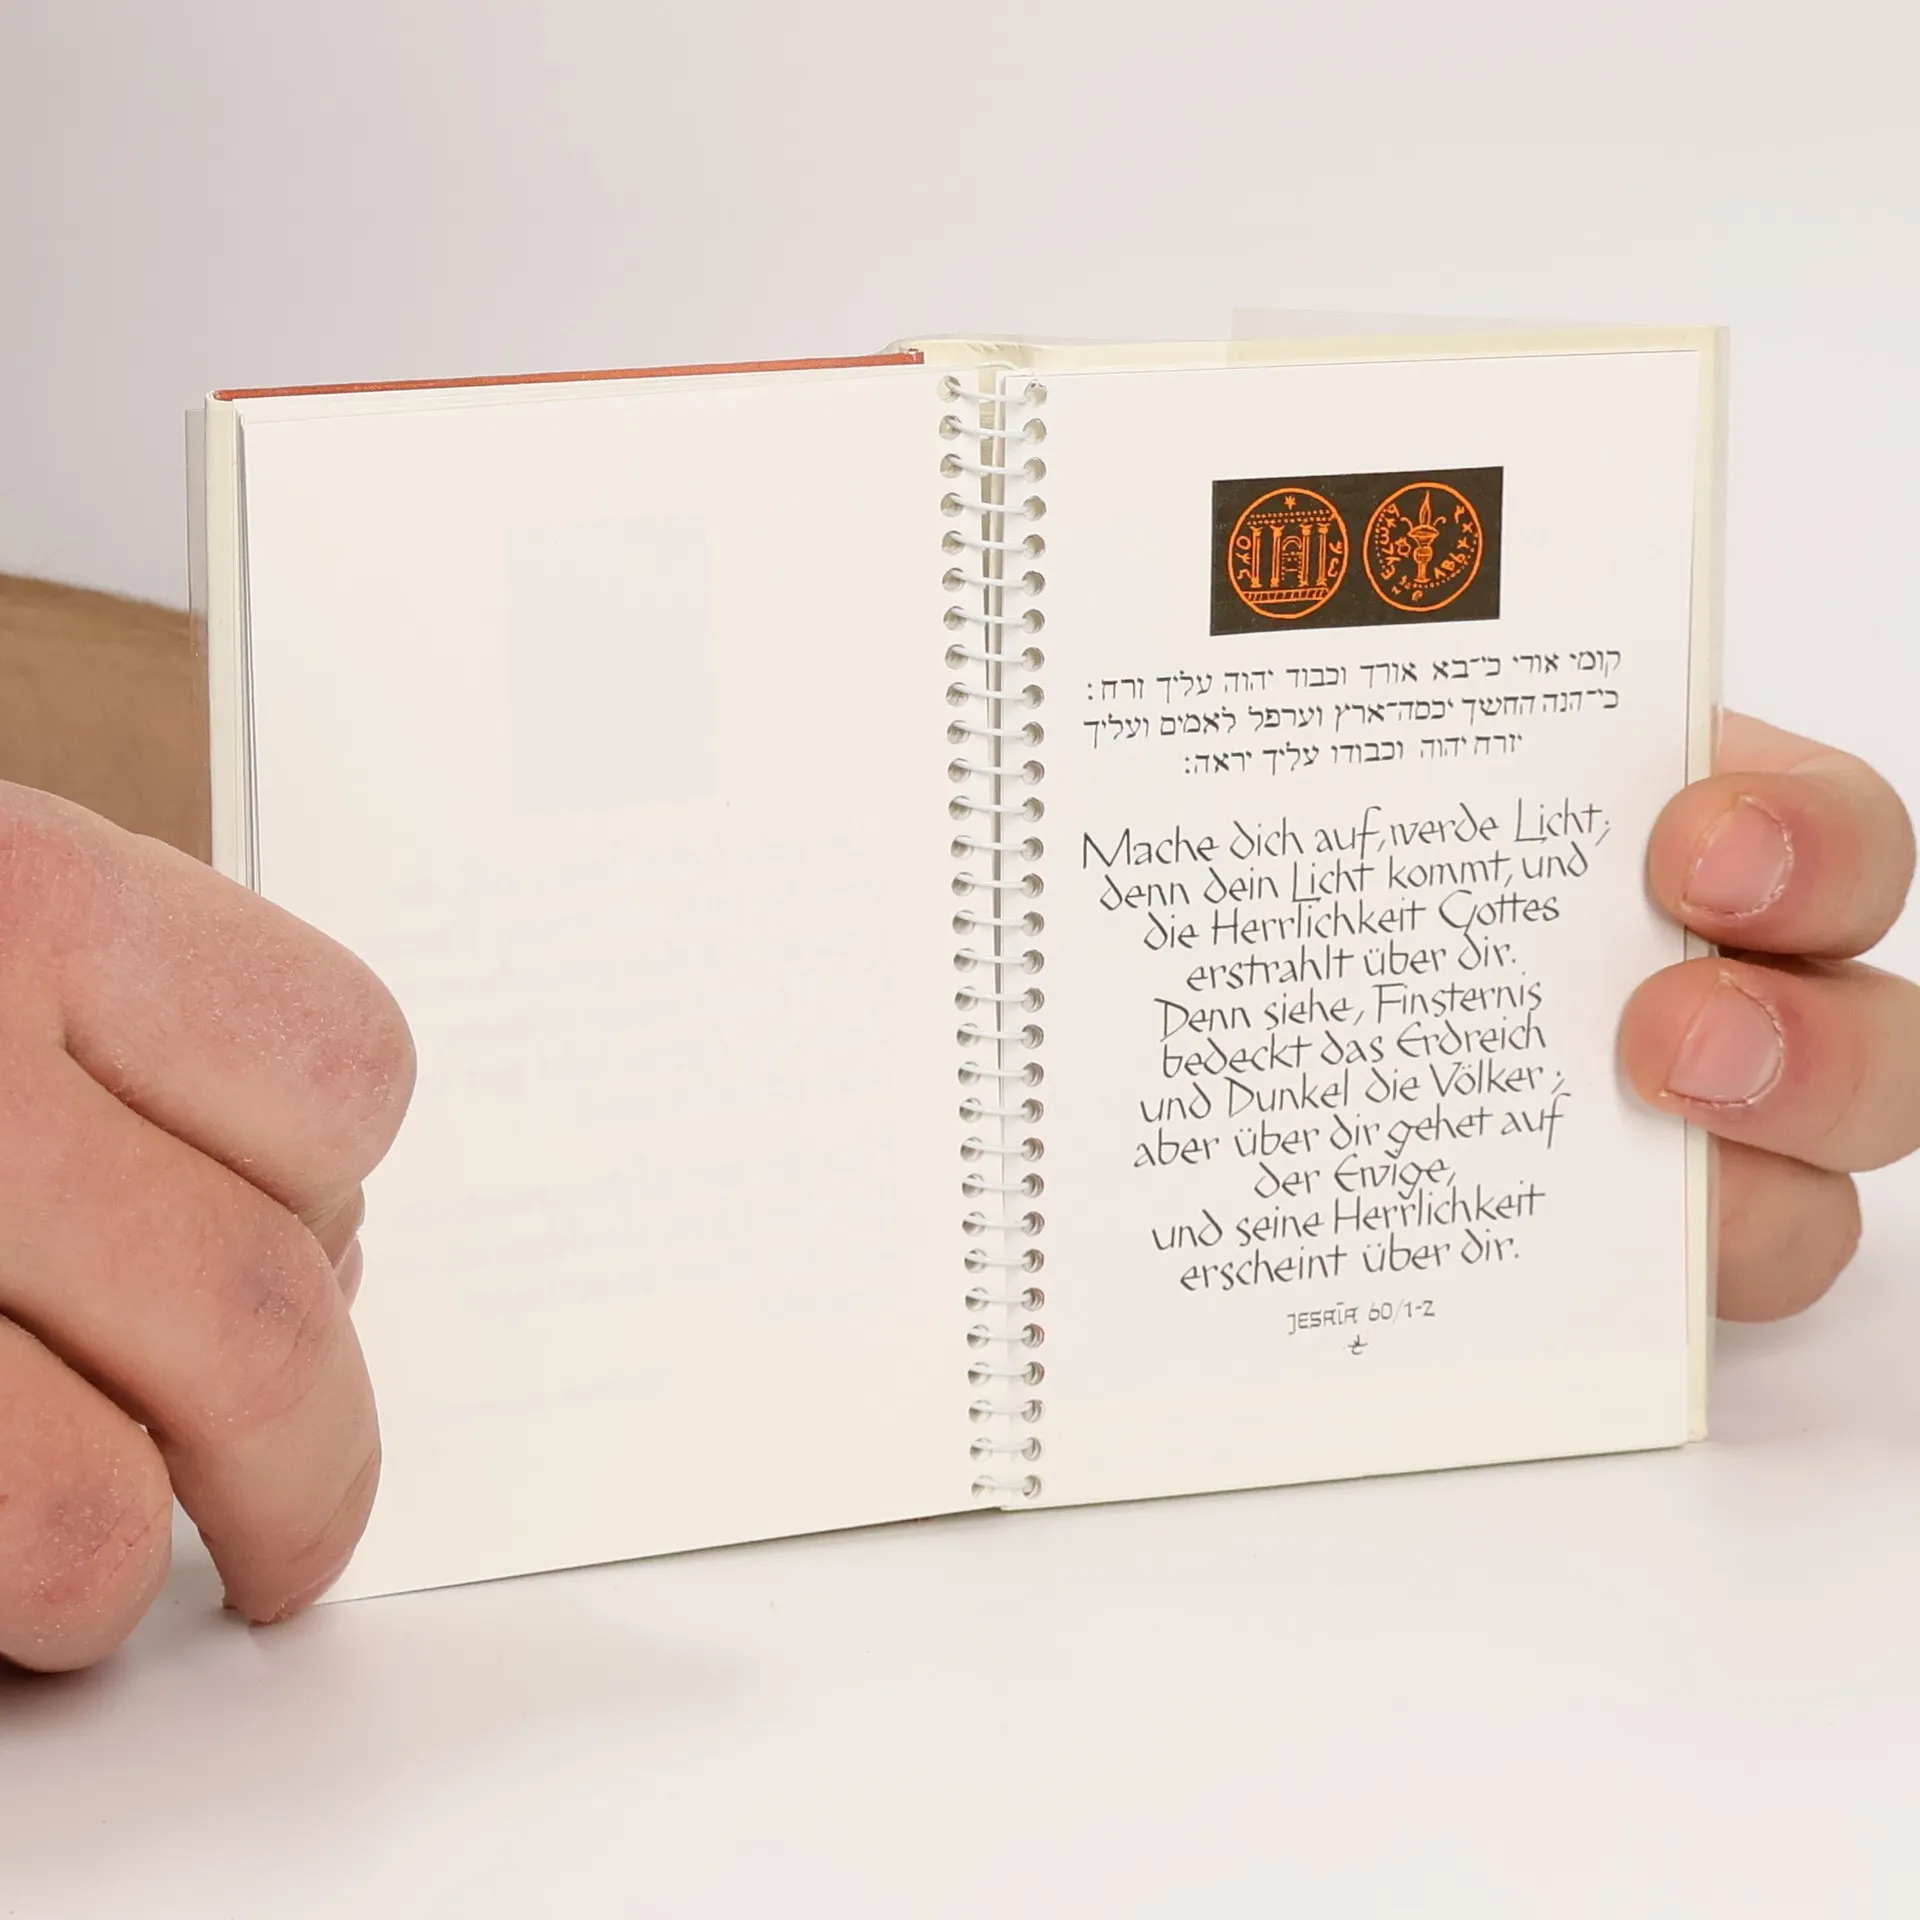 קומי אורי כי־בא אורך וכבוד יהוה עליך זרח:
כי־הנה החשך יכסה־ארץ וערפל לאמים ועליך
יזרח יהוה וכבודו עליך יראה:
Mache dich auf, werde Licht;
denn dein Licht kommt, und
die Herrlichkeit Gottes
erstrahlt über dir.
Denn siehe, Finsternis
bedeckt das Erdreich
und Dunkel die Völker;
aber über dir gehet auf
der Ewige,
und seine Herrlichkeit
erscheint über dir.
JESAIA 60/1-2